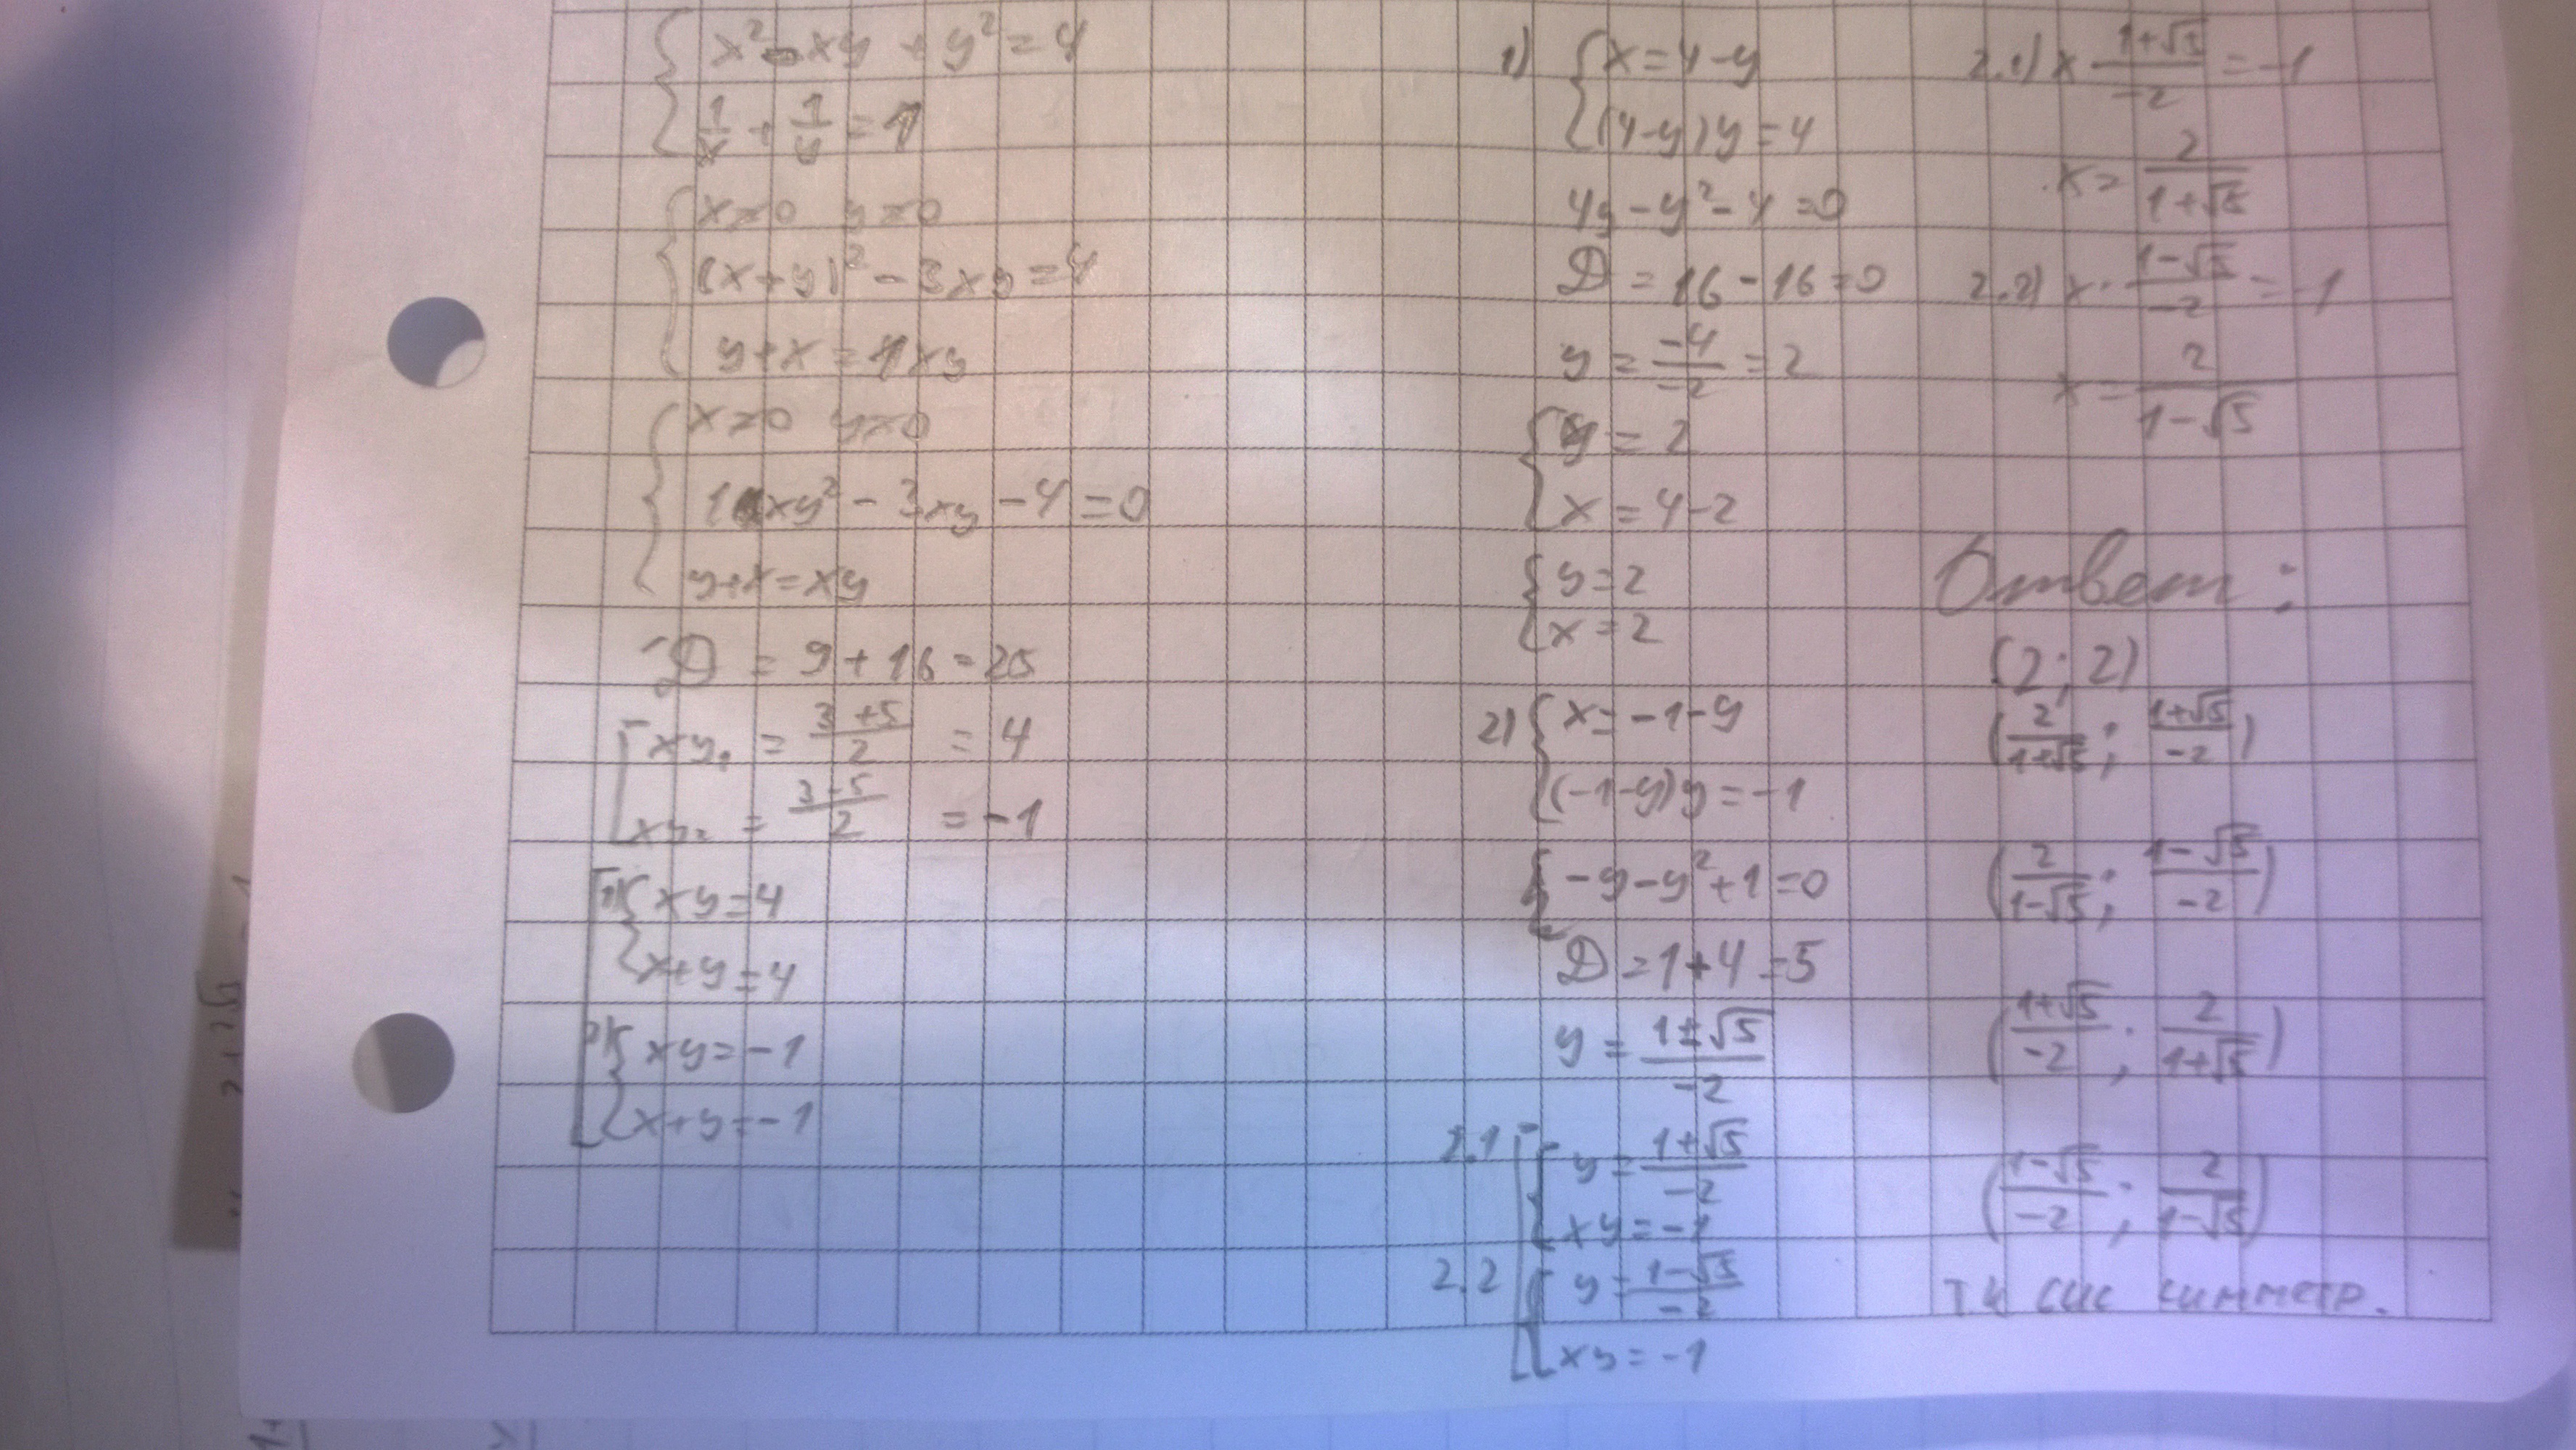 x² - xy + y² = 4
1/x + 1/y = 1
x≠0 y≠0
(x+y)² - 3xy = 4
y+x = 1xy
x≠0 y≠0
1xy² - 3xy - 4 = 0
y+x = xy
D = 9+16 = 25
xy₁ = (3+5)/2 = 4
xy₂ = (3-5)/2 = -1
1) xy = 4
x+y = 4
2) xy = -1
x+y = -1
1) x = 4-y
(4-y)y = 4
4y - y² - 4 = 0
D = 16-16 = 0
y = -4/-2 = 2
y = 2
x = 4-2
y = 2
x = 2
2) x = -1-y
(-1-y)y = -1
-y-y²+1 = 0
D = 1+4 = 5
y = (1±√5)/-2
2.1 y = (1+√5)/-2
xy = -1
2.2 y = (1-√5)/-2
xy = -1
2.1) x (1+√5)/-2 = -1
x = 2/(1+√5)
2.2) x · (1-√5)/-2 = -1
x = 2/(1-√5)
Ответ:
(2; 2)
(2/(1+√5); (1+√5)/-2)
(2/(1-√5); (1-√5)/-2)
((1+√5)/-2; 2/(1+√5))
((1-√5)/-2; 2/(1-√5))
тк сис симметр.